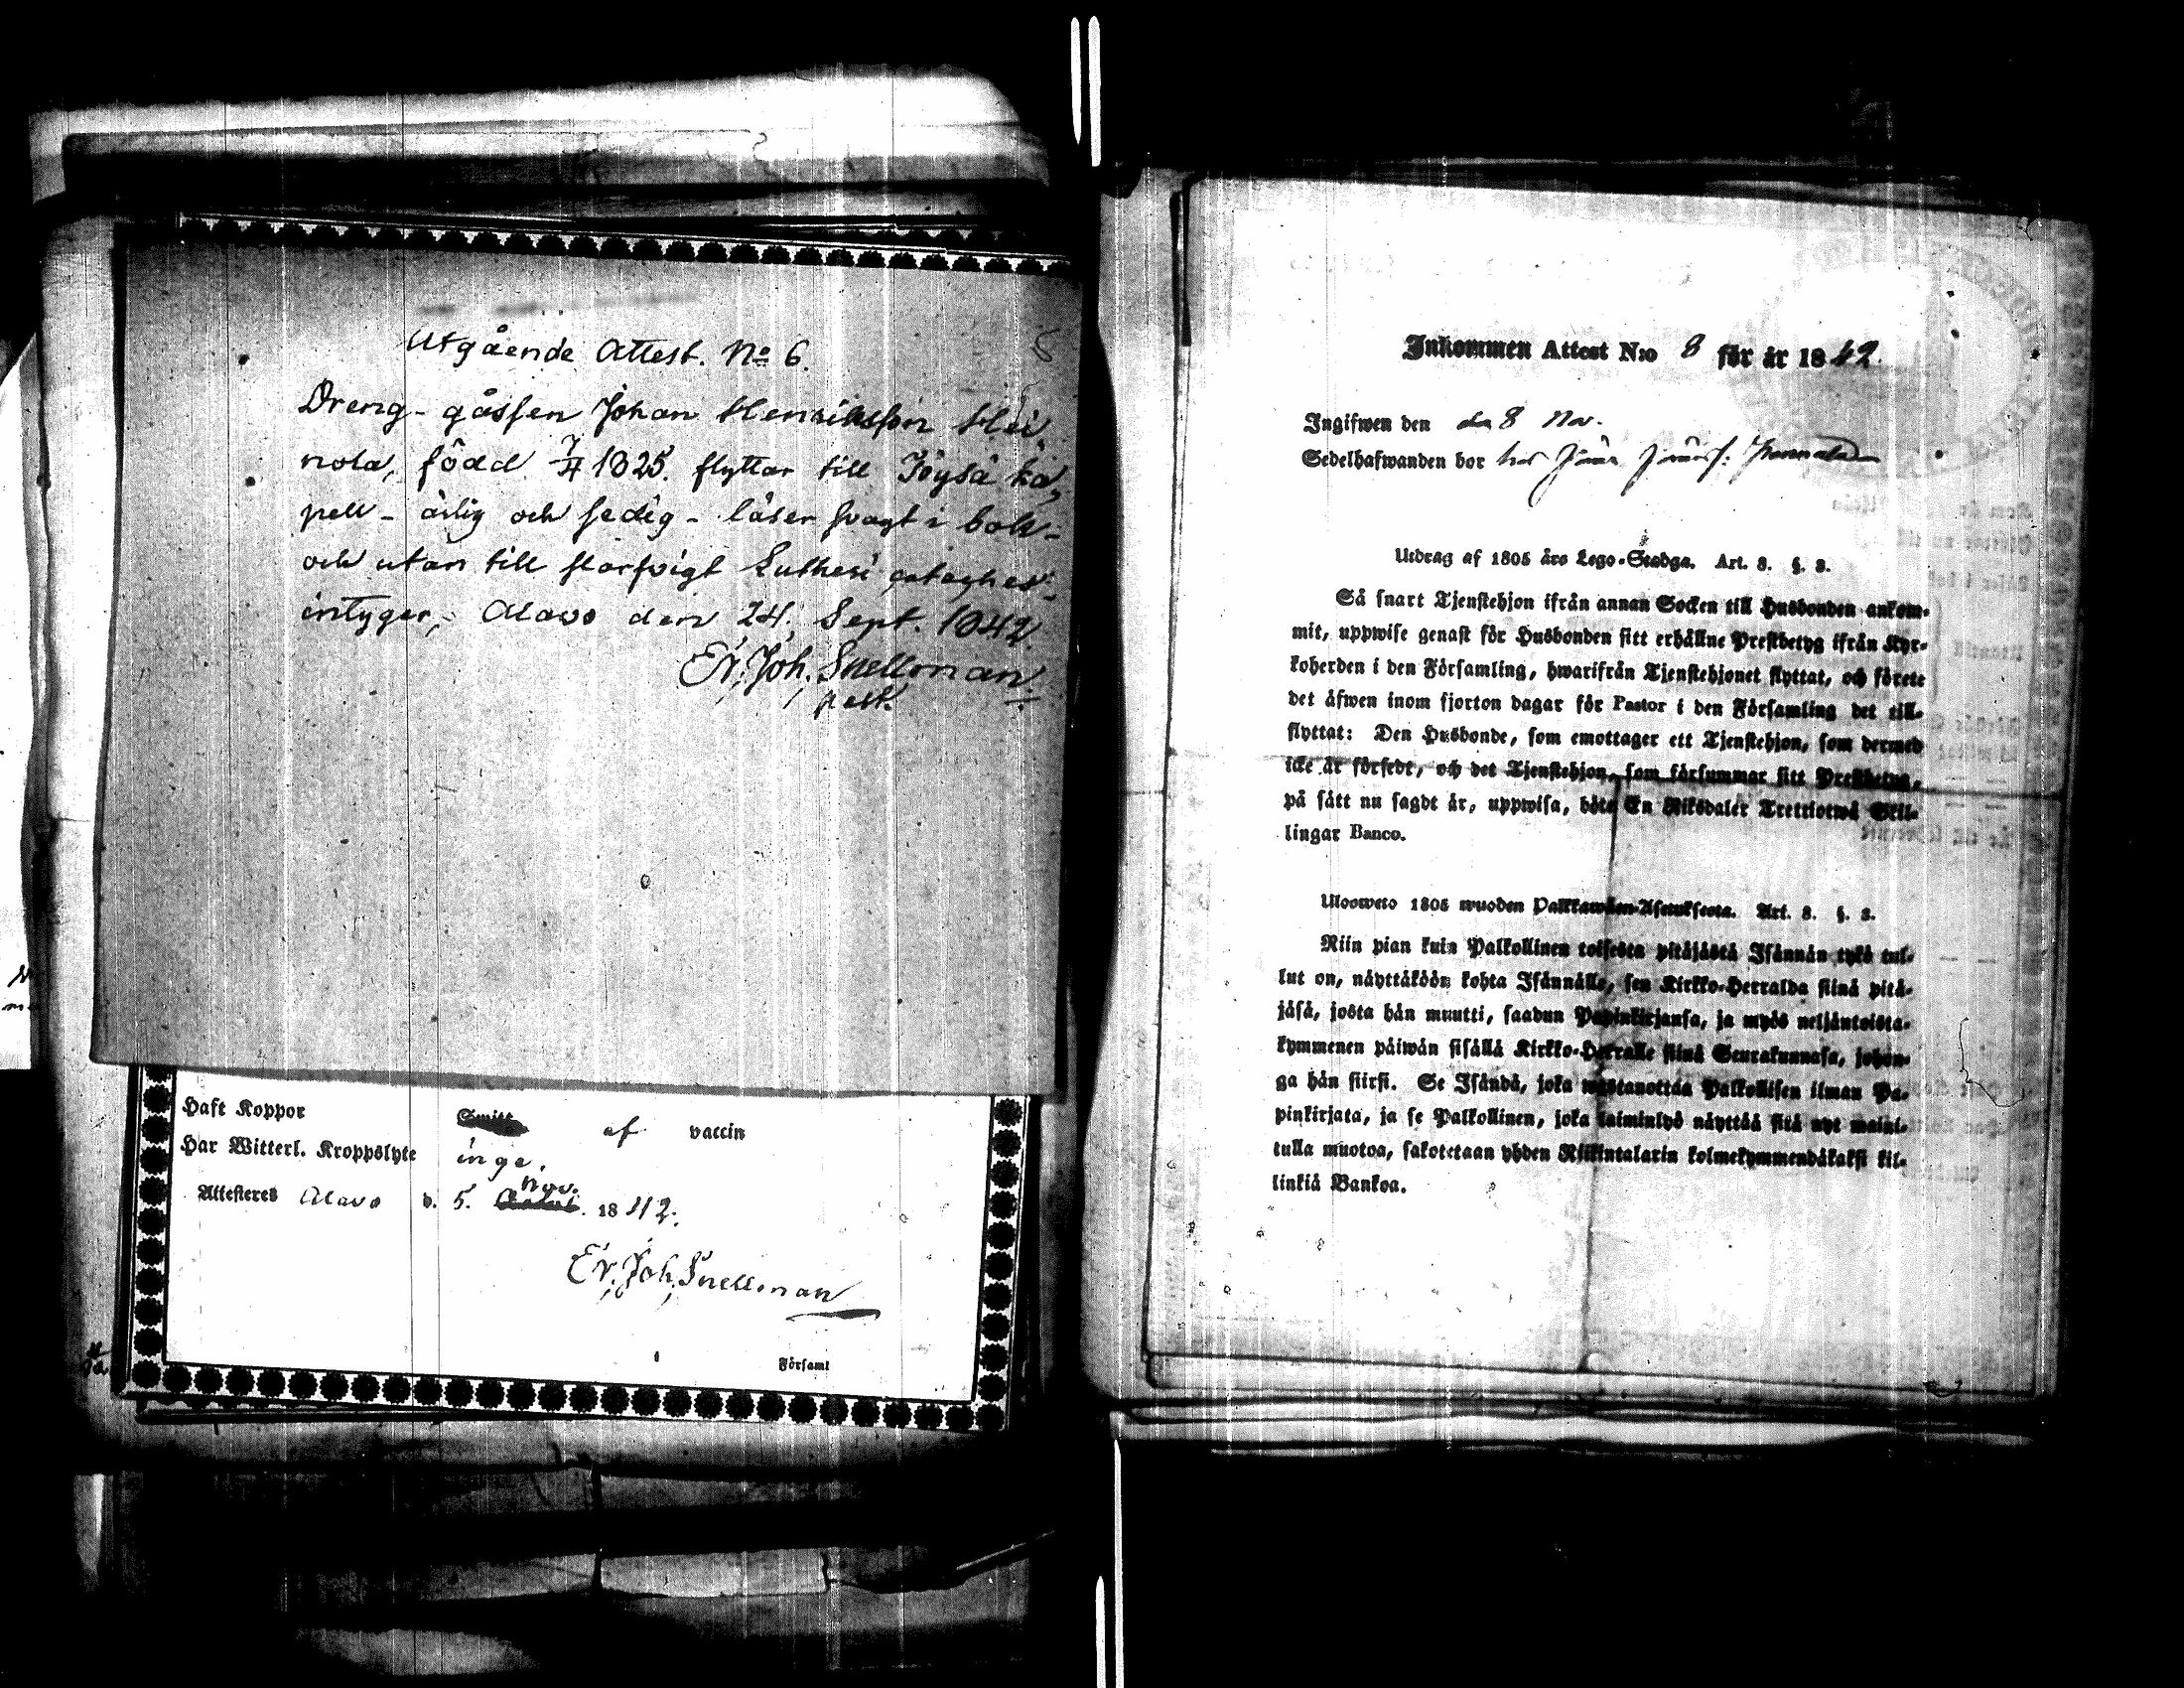 Utgående Attest. No 6.
Dreng-gåssen Johan Henriksson Hei-
nola, född 7/4 1825. flyttar till Töysä ka-
pell - ärlig och sedig - läser svagt i bok -
och utan till Lutheri
intygar, Alavo den 24. Sept. 1842.
Er. Joh. Snellman
past.
Haft Koppor af vaccin
Har Witterl. Kroppslyte inga.
Nov.
Attesteres Alavo d. 5. 1842.
Er. Joh. Snellman
Församl
Inkommen Attest N:o 8 för år 1842.
Ingifwen den 8 Nov.
Sedelhafwanden bor hos
Utdrag af 1805 års Lego-Stadga. Art. 3. §. 3.
Så snart Tjenstehjon ifrån annan Socken till Husbonden ankom-
mit, uppwise genast för Husbonden sitt erhållne Prestbetyg ifrån Kyr-
koherden i den Församling, hwarifrån Tjenstehjonet flyttat, och förete
det äfwen inom fjorton dagar för Pastor i den Församling det till-
flyttat: Den Husbonde, som emottager ett Tjenstehjon, som dermed
icke är försedt, och det Tjenstehjon, som försummar sitt Prestbetyg,
på sätt nu sagdt är, uppwisa, böte En Riksdaler Trettiotwå Skil-
lingar Banco.
Ulosweto 1805 wuoden Palkkawäen-Asetuksesta. Art. 3. §. 3.
Niin pian kuin Palkollinen toisesta pitäjästä Isännän tykö tul-
lut on, näyttäköön kohta Isännälle, sen Kirkko-Herralda siinä pitä-
jäsä, josta hän muutti, saadun Papinkirjansa, ja myös neljäntoista-
kymmenen päiwän sisällä Kirkko-Herralle siinä Seurakunnasa, johon-
ga hän siirsi. Se Isändä, joka wastanottaa Palkollisen ilman Pa-
pinkirjata, ja se Palkollinen, joka laiminlyö näyttää sitä nyt maini-
tulla muotoa, sakotetaan yhden Riikintalarin kolmekymmendäkaksi kil-
linkiä Bankoa.